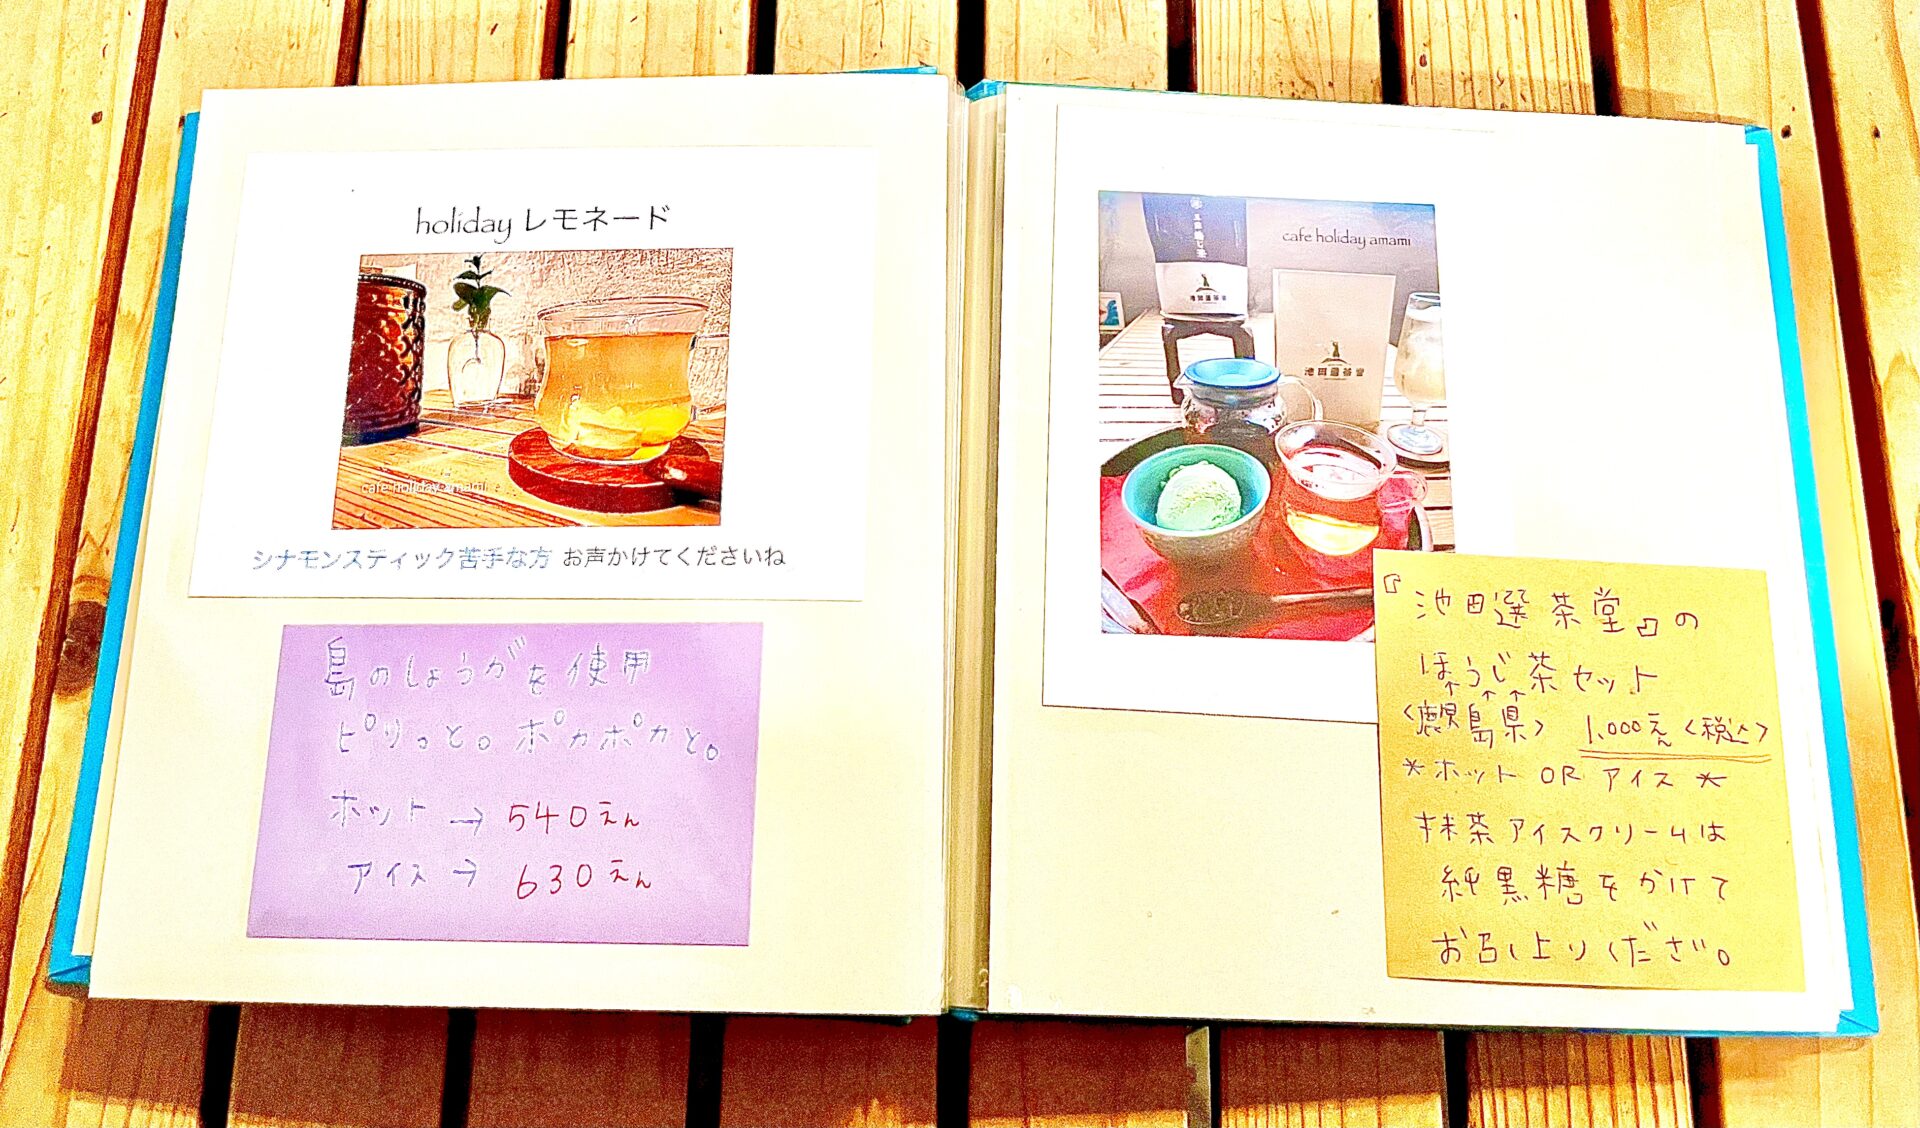 holiday レモネード
cafe holiday amami
シナモンスティック苦手な方 お声かけてくださいね
島のしょうがを使用
ピリっと。ポカポカと。
ホット → 540えん
アイス → 630えん
cafe holiday amami
池田選茶堂
池田選茶堂
『池田選茶堂』の
ほうじ茶セット
<鹿児島県> 1,000えん<税込>
*ホット OR アイス*
抹茶アイスクリームは
純黒糖をかけて
お召し上りくださぃ。